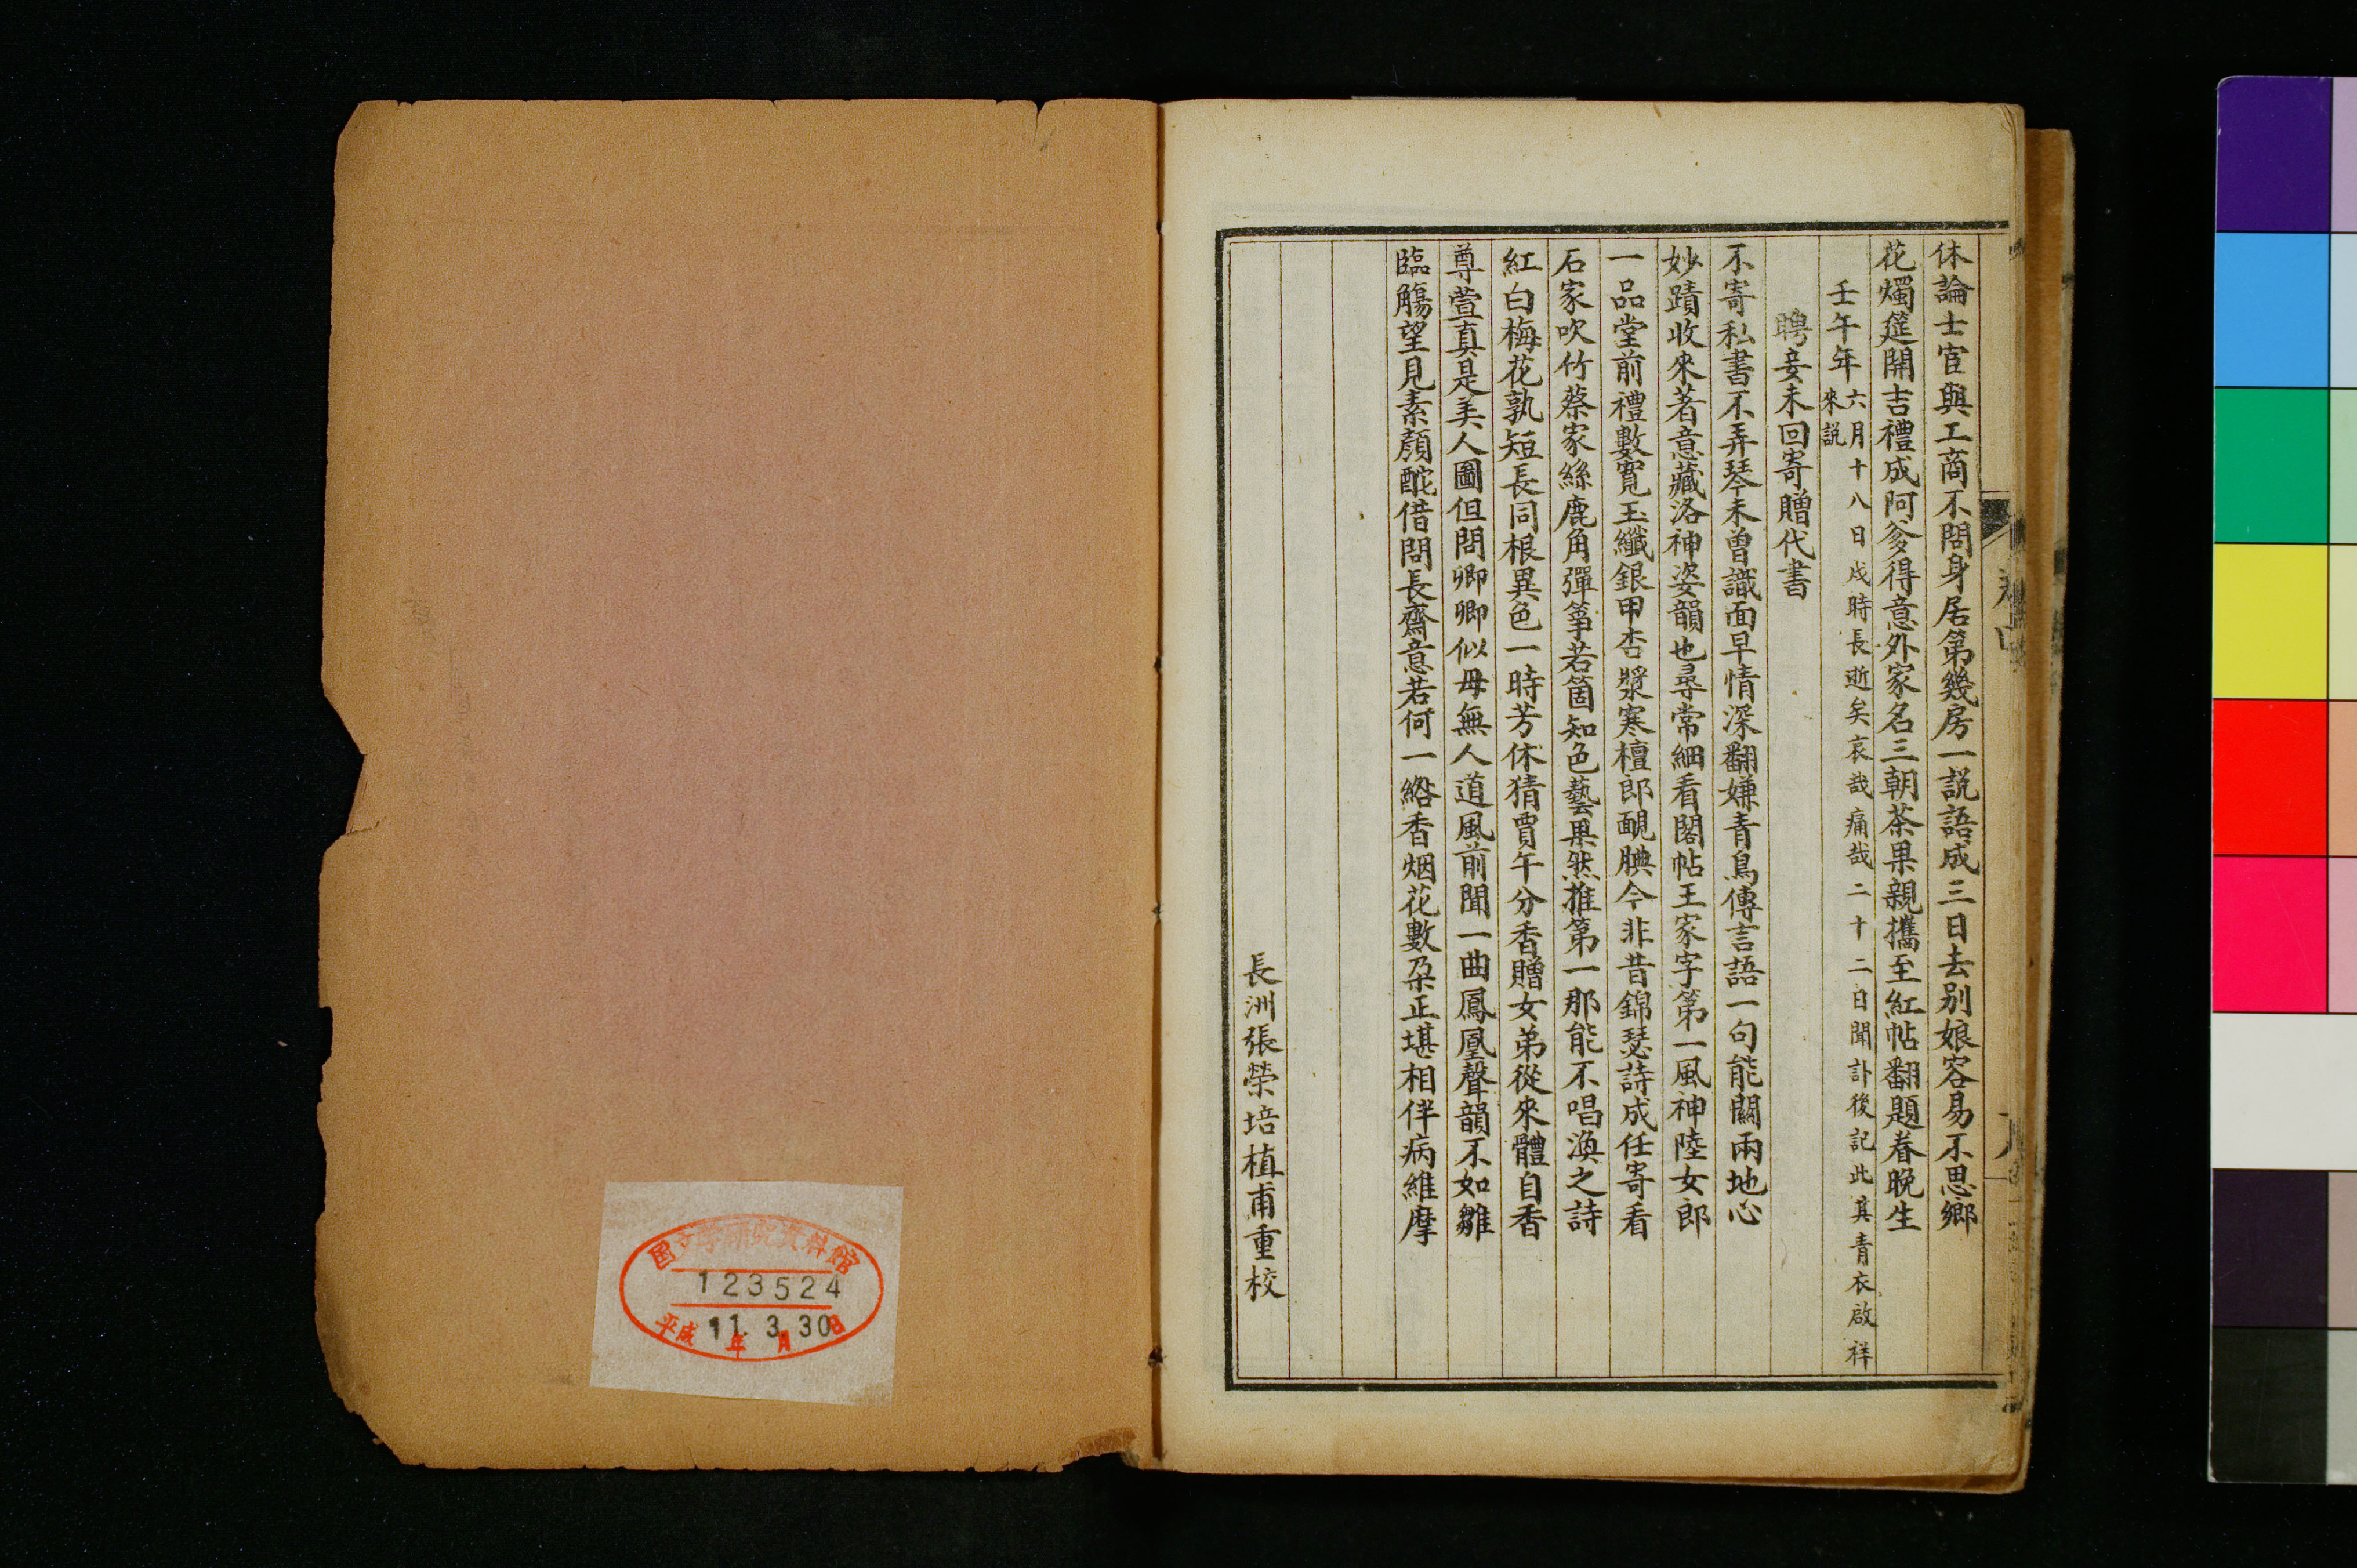 休論士宦與工商不問身居第幾房一説語成三日去别娘容易不思鄉
花燭筵開吉禮成阿爹得意外家名三朝茶果親攜至紅帖翻題眷晚生
壬午年六月十八日戌時長逝矣哀哉痛哉二十二日聞訃後記此其青衣啟祥
來説
聘妾未回寄贈代書
不寄私書不弄琴未曾識面早情深翻嫌青鳥傳言語一句能關兩地心
妙蹟收來著意藏洛神姿韻也尋常細看閣帖王家字第一風神陸女郎
一品堂前禮數寬玉纖銀甲杏漿寒檀郎靦腆今非昔錦瑟詩成任寄看
石家吹竹蔡家絲鹿角彈箏若箇知色藝果然推第一那能不唱渙之詩
紅白梅花孰短長同根異色一時芳休猜賈午分香贈女弟從來體自香
尊萱真是美人圖但問卿卿似母無人道風前聞一曲鳳凰聲韻不如雛
臨觴望見素顏酡借問長齋意若何一綹香烟花數朵正堪相伴病維摩
長洲張榮培植甫重校
国文学研究資料館
123524
平成11年3月30日